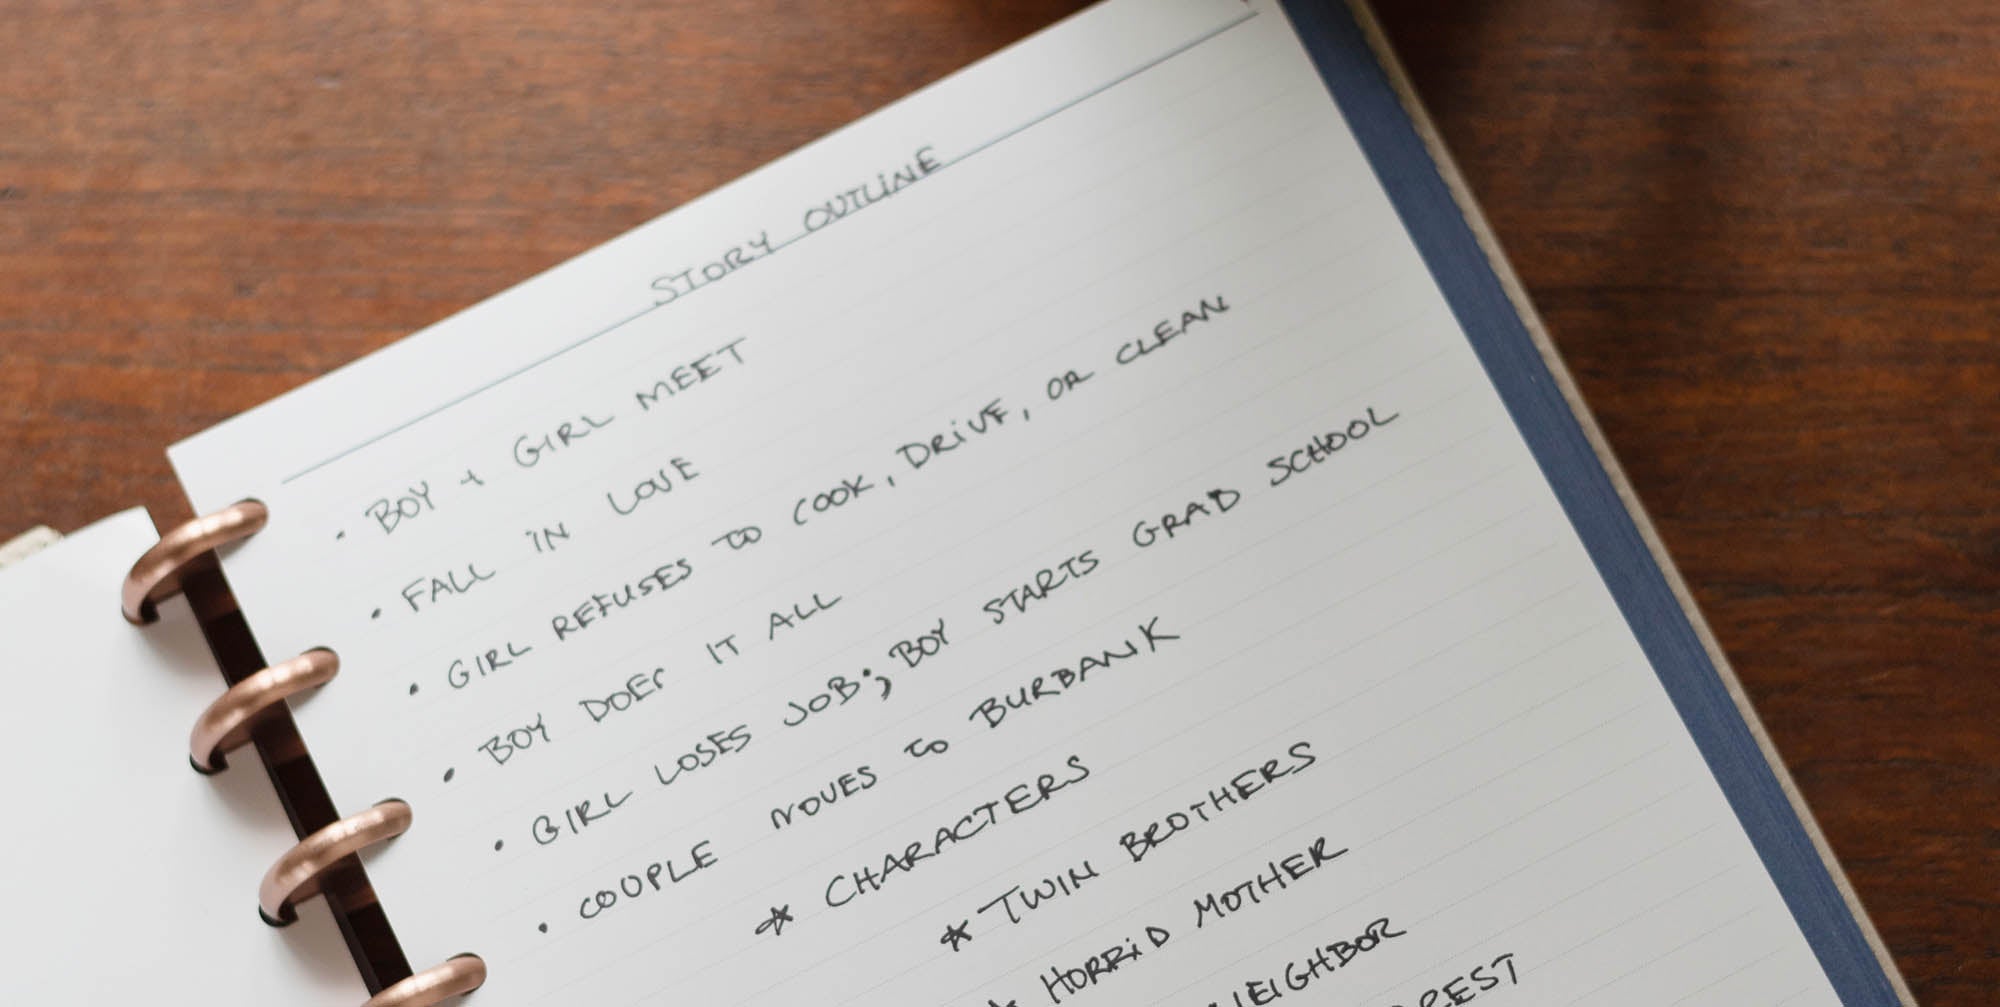 STORY OUTLINE
• BOY + GIRL MEET
• FALL IN LOVE
• GIRL REFUSES TO COOK, DRIVE, OR CLEAN
• BOY DOES IT ALL
• GIRL LOSES JOB; BOY STARTS GRAD SCHOOL
• COUPLE MOVES TO BURBANK
☆ CHARACTERS
☆ TWIN BROTHERS
☆ HORRID MOTHER
NEIGHBOR